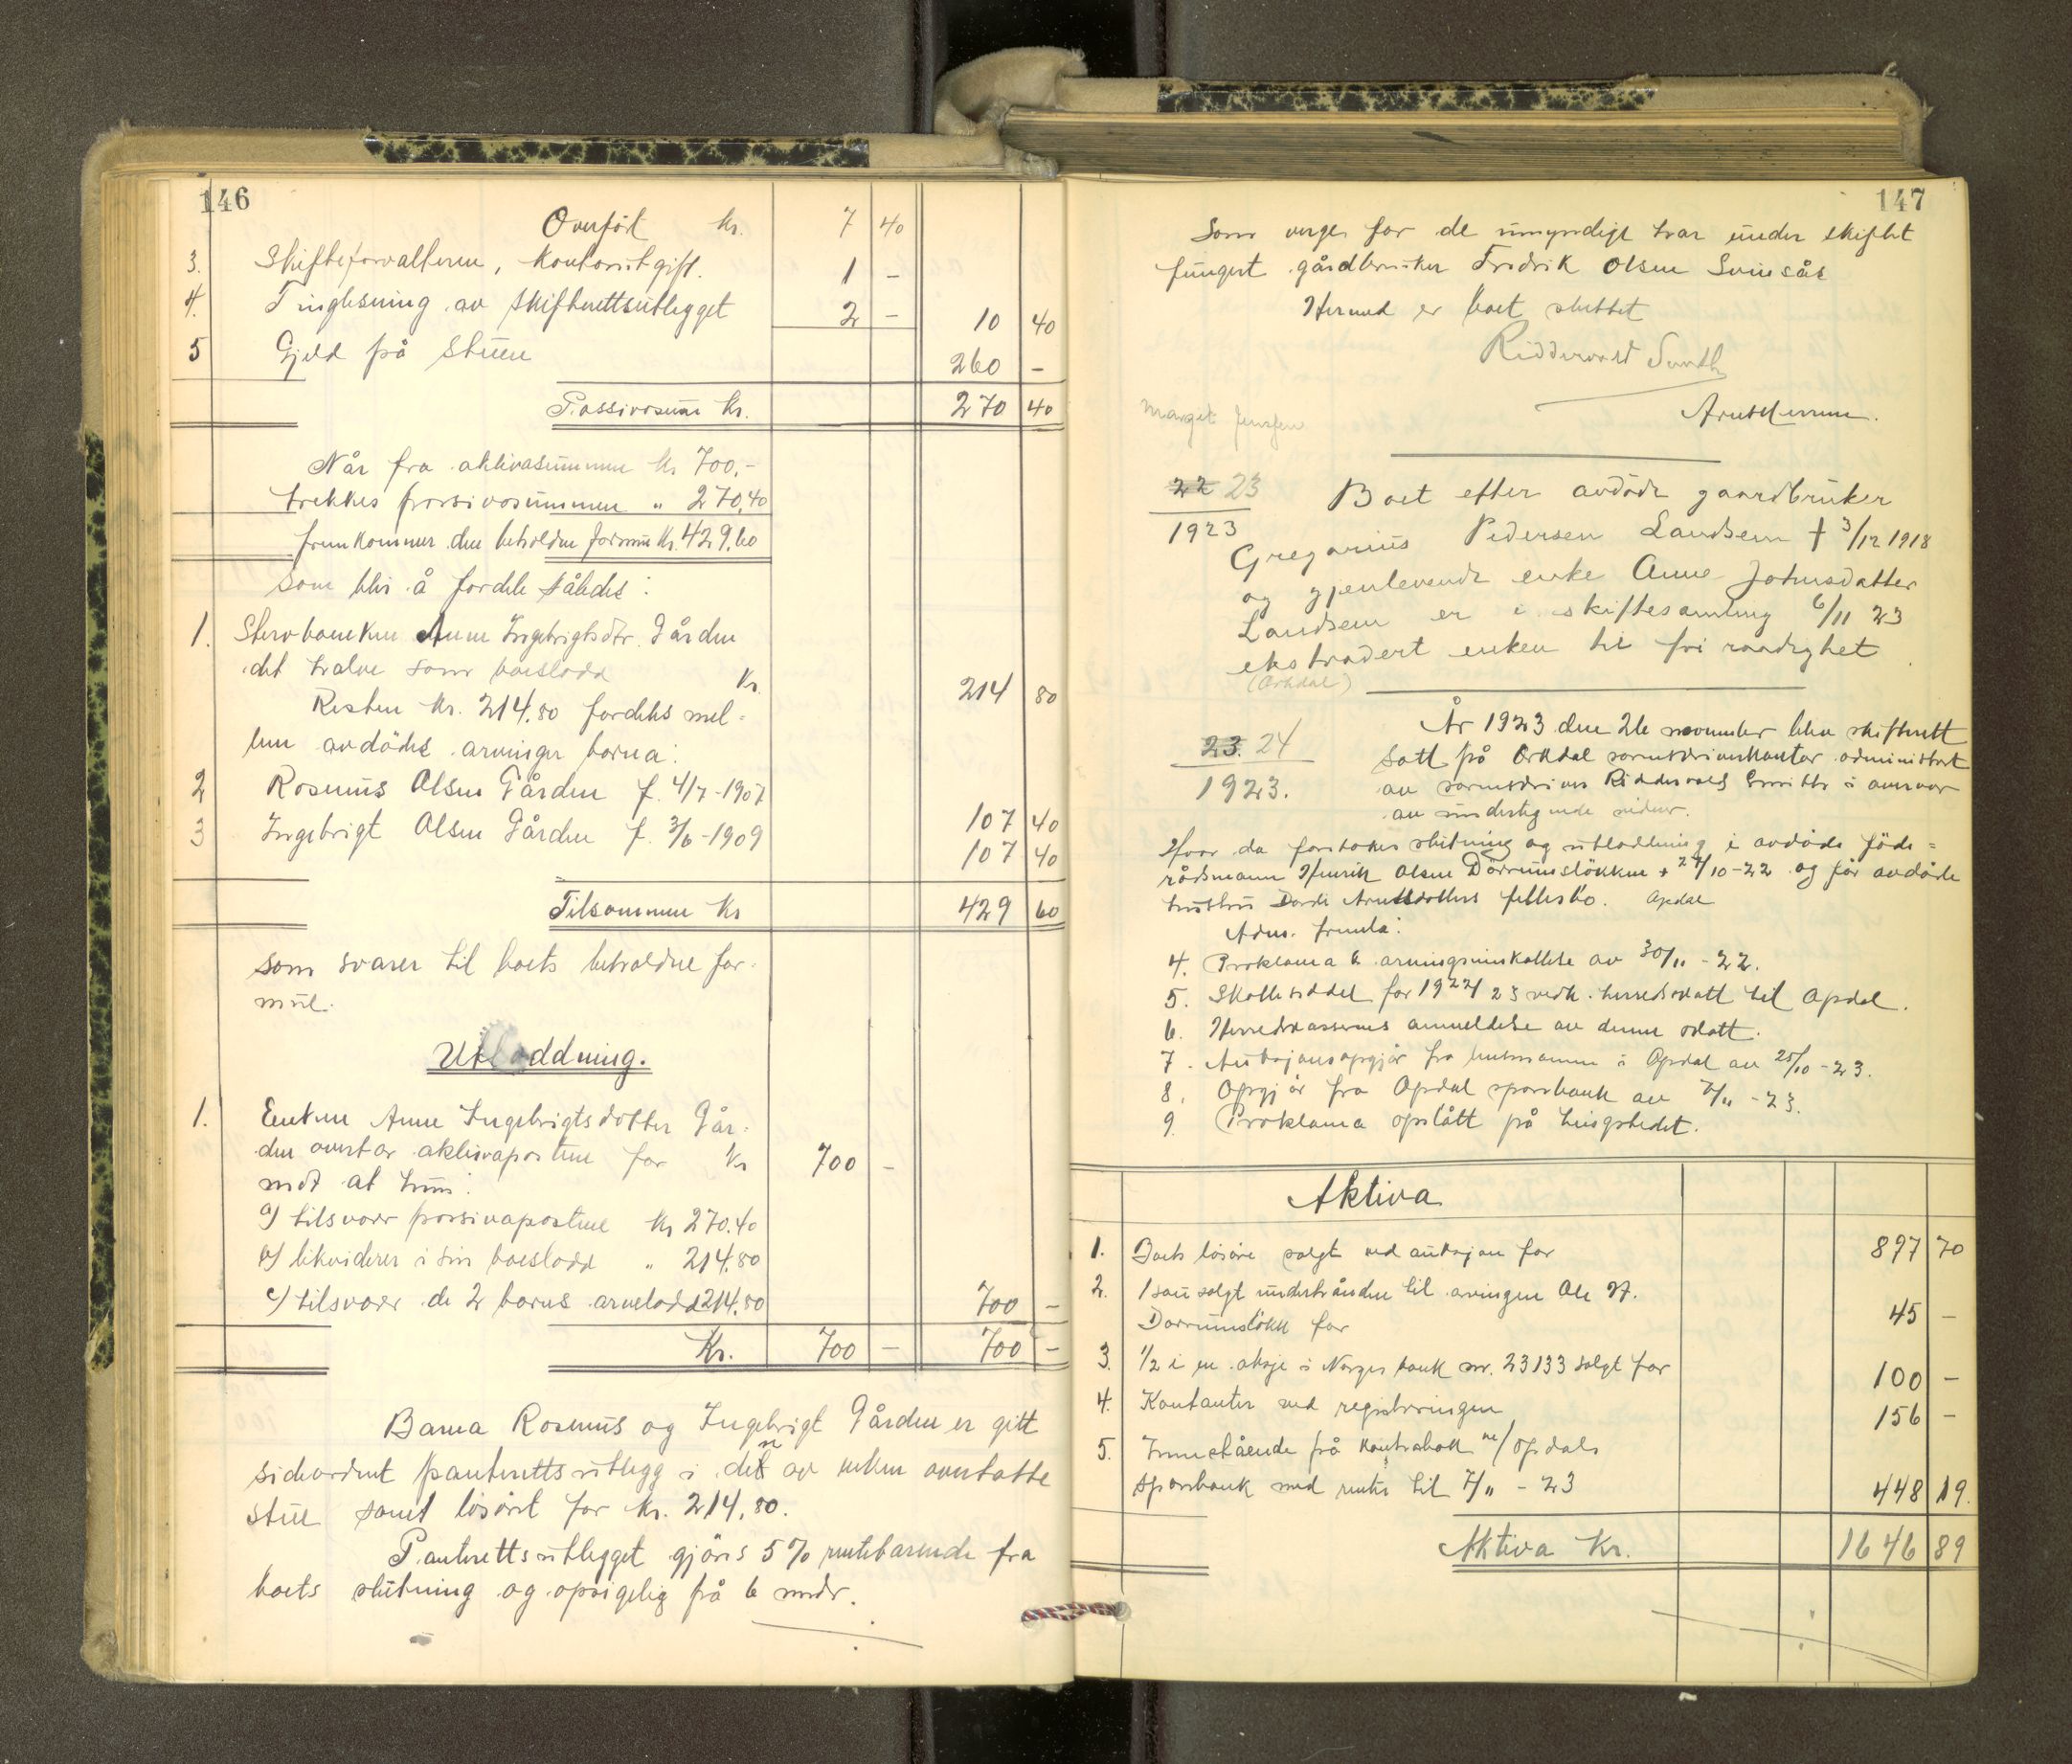 146
Overført kr. 7 40
3. Skifteforvalteren, kontorutgift. 1 -
4. Tinglesning av skifterettsutlegget 2 - 10 40
5 Gjeld på stuen 260 -
Passivasum kr. 270 40
Når fra aktivasummen kr 700.-
trekkes passivasummen " 270,40
fremkommer den beholdne formue Kr. 429.60
som blir å fordele således:
1. Stervboenken Anne Ingebrigtsdtr. Gården
det halve som boeslodd Kr. 214 80
Resten kr. 214.80 fordeles mel-
lem avdødes arvinger barna:
2 Rosenius Olsen Gården f. 4/7-1907 107 40
3 Ingebrigt Olsen Gården f. 3/6-1909 107 40
Tilsammen Kr 429 60
som svarer til boets beholdne for-
mue.
Utloddning.
1. Enken Anne Ingebrigtsdotter Går-
den overtar aktivapostene for Kr 700 -
mot at hun:
a) tilsvarer passivapostene Kr 270.40
b) likviderer i sin boeslodd " 214.80
c) tilsvarer de 2 barns arvelodd 214.80 700 -
Kr. 700 - 700 -
Barna Rosenius og Ingebrigt Gården er gitt
sideordnet panterettsutlegg i den av enken overtatte
stue samt løsøret for kr. 214.80.
Panterettsutlegget gjøres 5% rentebærende fra
boets slutning og opsigelig på 6 mndr.
147
Som verge for de umyndige har under skiftet
fungert gårdbruker Fredrik Olsen Svinsås
Hermed er boet sluttet
Ridderwold Smith
Margit Jensen
22 23
1923
Boet efter avdøde gaardbruker
Gregorius Pedersen Landsem † 3/12 1918
og gjenlevende enke Anne Johnsdatter
Landsem er i skiftesamling 6/11 23
ekstradert enken til fri raadighet
(Orkdal)
23. 24
1923.
År 1923 den 26 november blev skifterett
satt på Orkdal sorenskriverkontor administrert
av sorenskriver Ridderwold Smith i overvær
av undertegnede vidner.
Hvor da foretokes slutning og utloddning i avdøde føde-
rådsmann Henrik Olsen Dørrumsløkken + 27/10-22 og før avdøde
hustru Dordi Arntsdotters fellesbo. Opdal
Adm. fremla:
4. Proklama & arvingsinnkallelse av 30/11-22.
5. Skatteseddel for 1922/23 vedk. herredsskatt til Opdal.
6. Herredskasserens anmeldelse av denne skatt.
7. Auksjonsopgjør fra lensmannen i Opdal av 25/10-23.
8. Opgjør fra Opdal sparebank av 7/11-23.
9. Proklama opslått på tingstedet.
Aktiva
1. Boets løsøre solgt ved auksjon for 897 70
2. 1 sau solgt underhånden til arvingen Ole H.
Dørrumsløkk for 45 -
3. 1/2 i en aksje i Norges bank nr. 23133 solgt for 100 -
4. Kontanter ved registreringen 156 -
5. Innestående på kontrabok m/Opdals
sparebank med renter til 7/11-23 448 19.
Aktiva Kr. 1646 89